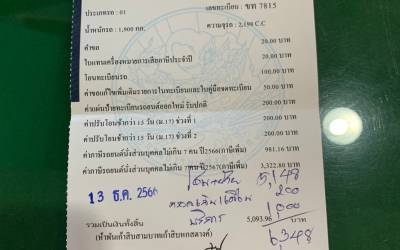 ประเภทรถ : 01 เลขทะเบียน : ขท 7815
น้ำหนักรถ : 1,900 กก. ความจุรถ : 2,198 C.C
คำขอ 20.00 บาท
ใบแทนเครื่องหมายการเสียภาษีประจำปี 20.00 บาท
โอนทะเบียนรถ 100.00 บาท
ค่าขอแก้ไขเพิ่มเติมรายการในทะเบียนและใบคู่มือจดทะเบียน 50.00 บาท
ค่าแผ่นป้ายทะเบียนรถยนต์ออกใหม่ รับปกติ 200.00 บาท
ค่าปรับโอนช้ากว่า 15 วัน (ม.17) ช่วงที่ 1 200.00 บาท
ค่าปรับโอนช้ากว่า 15 วัน (ม.17) ช่วงที่ 2 200.00 บาท
ค่าภาษีรถยนต์นั่งส่วนบุคคลไม่เกิน 7 คน ปี2566(ภาษีเพิ่ม) 981.16 บาท
ค่าภาษีรถยนต์นั่งส่วนบุคคลไม่เกิน 7 คน ปี2567(ภาษีเพิ่ม) 3,322.80 บาท
5,148
13 ธ.ค. 2566
200
บริการ 1,000
รวมเป็นเงินทั้งสิ้น 5,093.96 บาท
(ห้าพันเก้าสิบสามบาทเก้าสิบหกสตางค์) 6,348